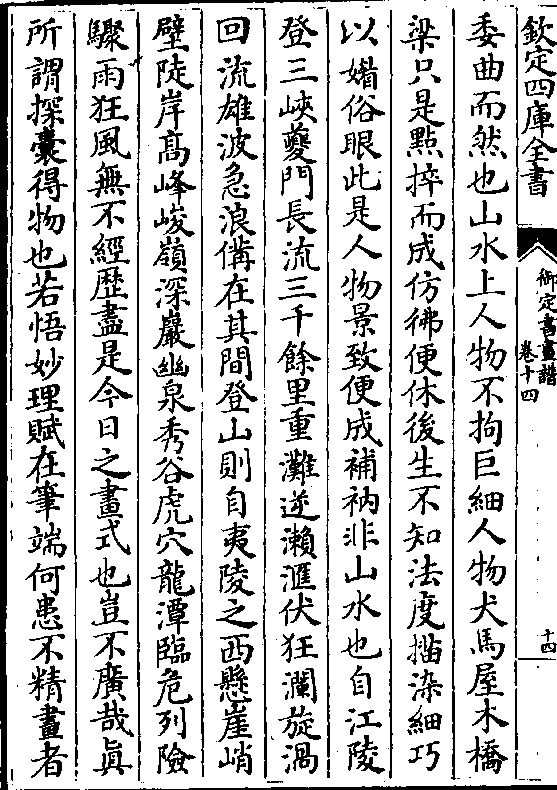 欽定四庫全書
御定書畫譜
卷十四
十四
委曲而然也山水上人物不拘巨細人物犬馬屋木橋
梁只是點捽而成仿彿便休後生不知法度描染細巧
以媚俗眼此是人物景致便成補衲非山水也自江陵
登三峽夔門長流三千餘里重灘逆瀨滙伏狂瀾旋渦
回流雄波急浪備在其間登山則自夷陵之西懸崖峭
壁陡岸髙峰峻嶺深巖幽泉秀谷虎穴龍潭臨危列險
驟雨狂風無不經歴盡是今日之畫式也豈不廣哉真
所謂探囊得物也若悟妙理賦在筆端何患不精畫者